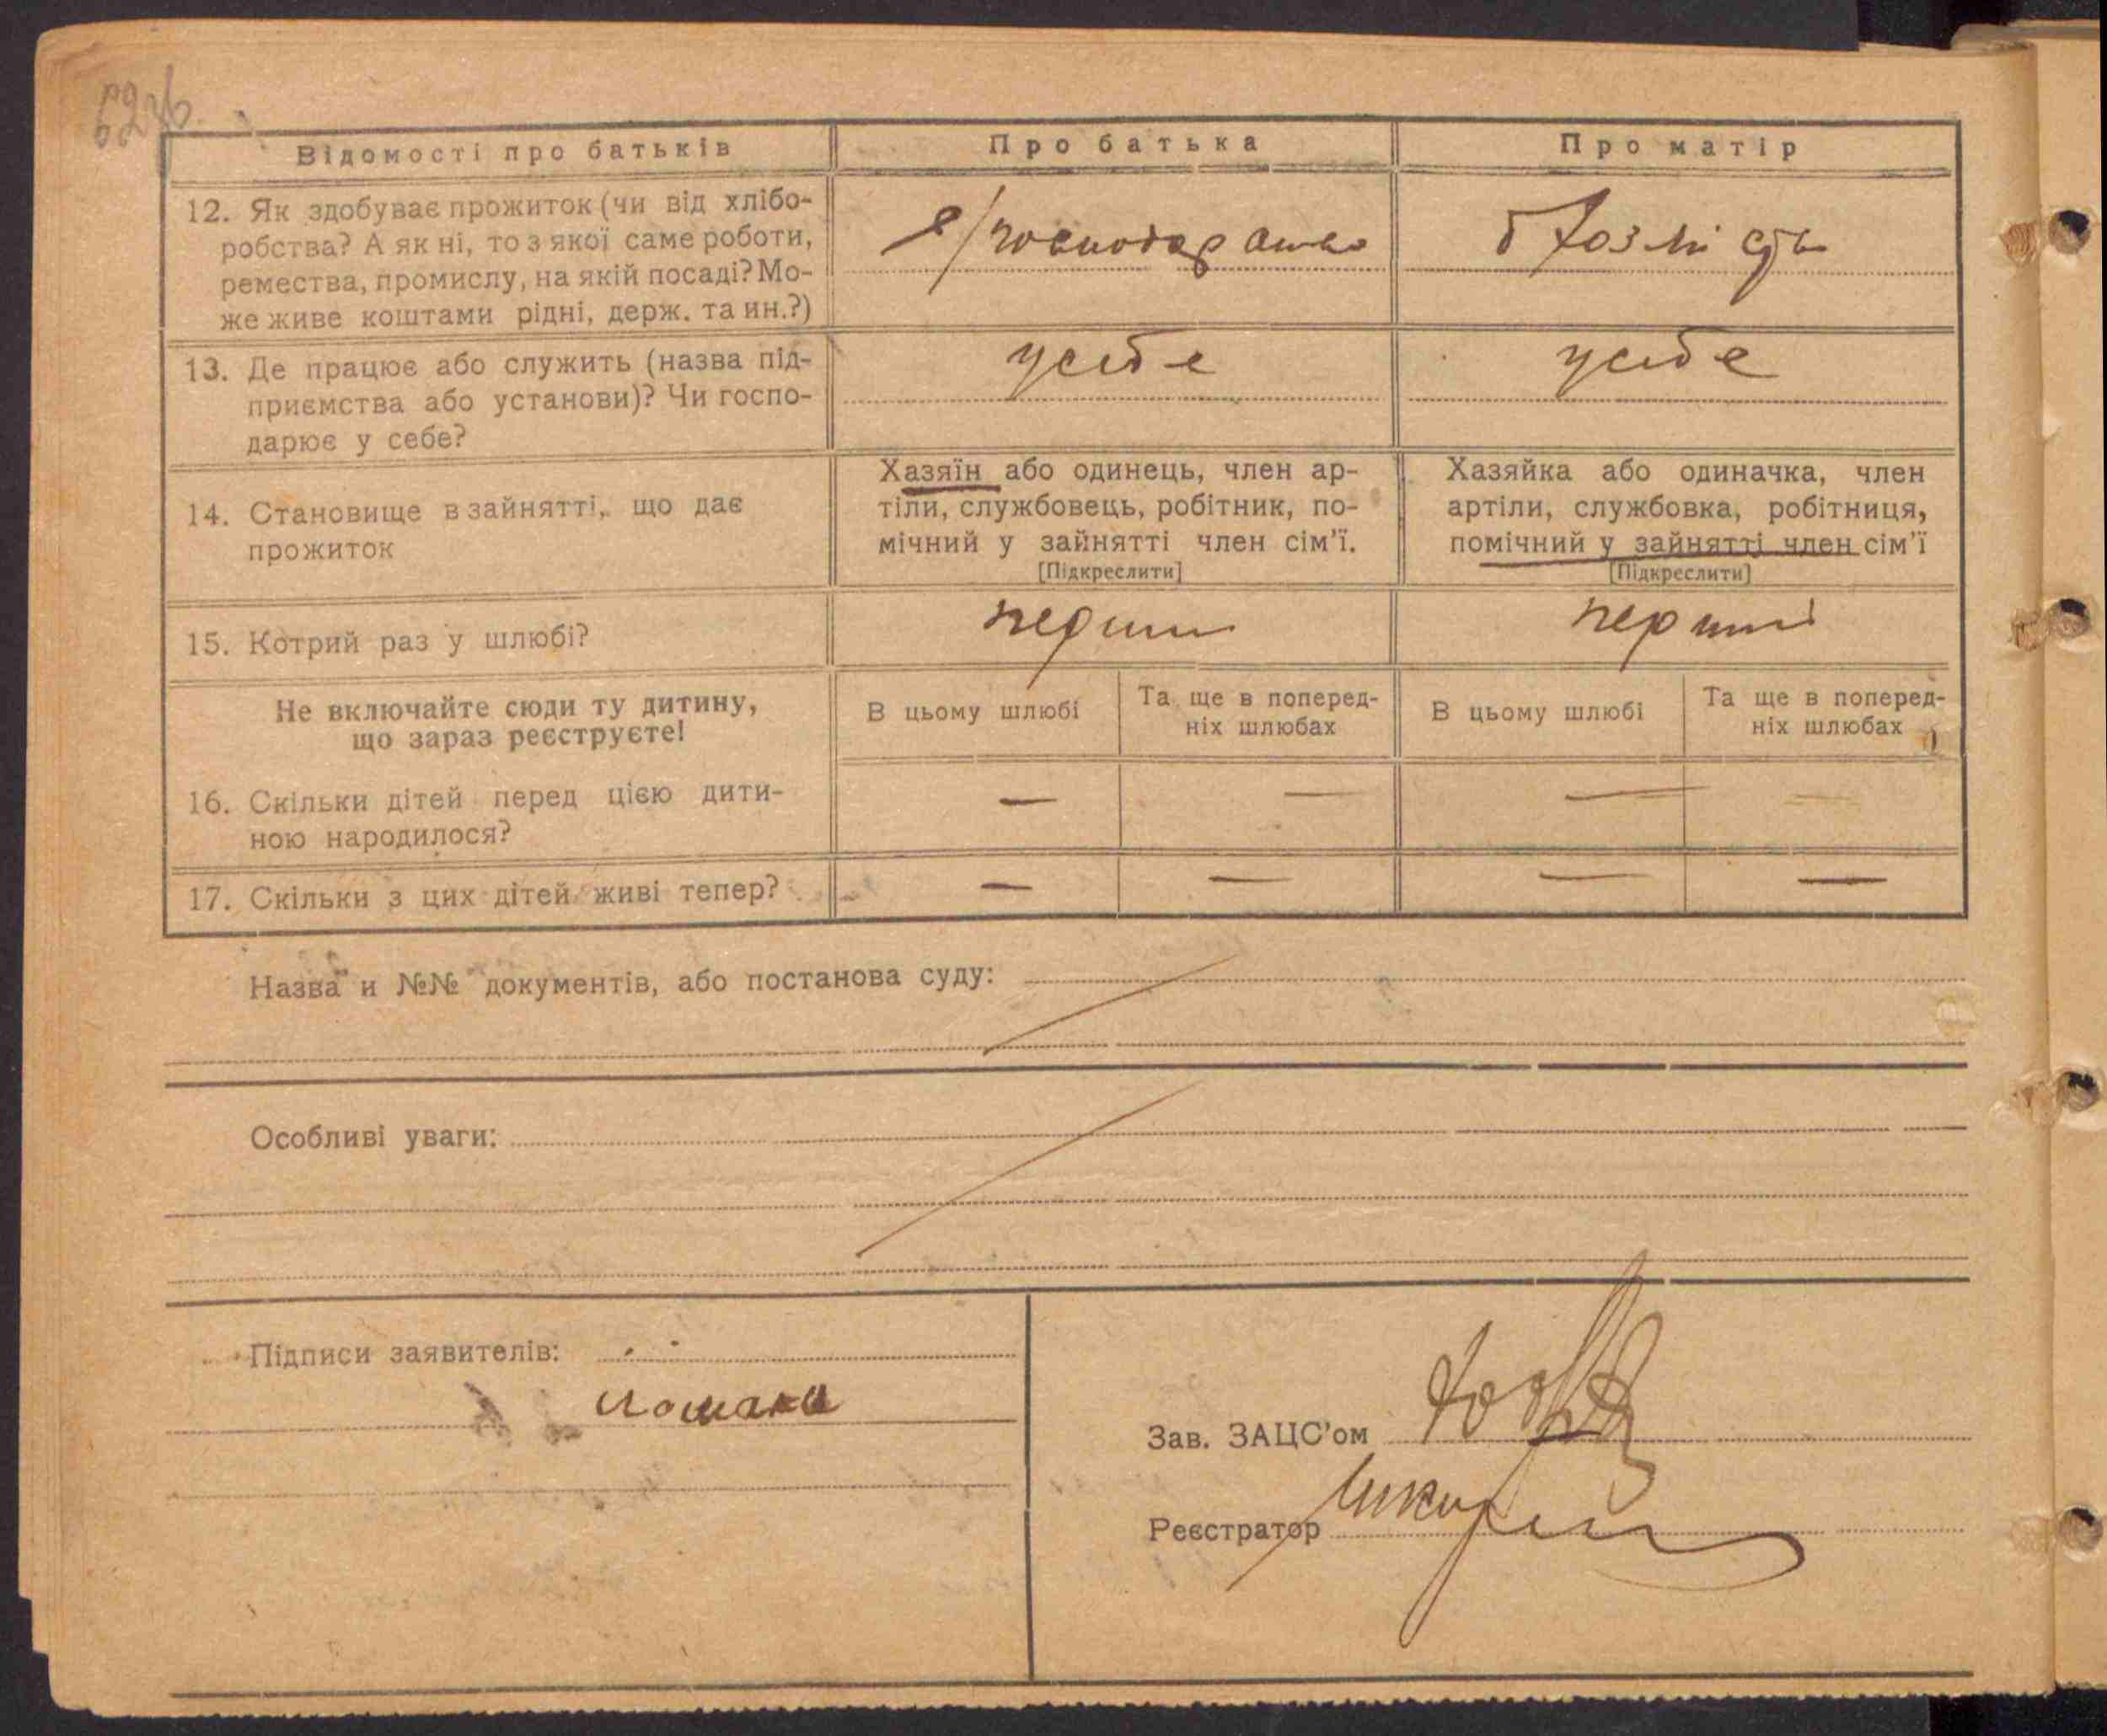 Відомості про батьків
Про батька
Про матір
12. Як здобуває прожиток (чи від хлібо-
робства? А як ні, то з якої саме роботи,
ремества, промислу, на якій посаді? Мо-
же живе коштами рідні, держ. та ин.?)
13. Де працює або служить (назва під-
приємства або установи)? Чи госпо-
дарює у себе?
усебе
усебе
14. Становище в зайнятті, що дає
прожиток
Хазяїн або одинець, член ар-
тіли, службовець, робітник, по-
мічний у зайнятті член сім'ї.
[Підкреслити]
Хазяйка або одиначка, член
артіли, службовка, робітниця,
помічний у зайнятті член сім'ї
[Підкреслити]
15. Котрий раз у шлюбі?
перший
перший
Не включайте сюди ту дитину,
що зараз реєструєте!
В цьому шлюбі
Та ще в поперед-
ніх шлюбах
В цьому шлюбі
Та ще в поперед-
ніх шлюбах
16. Скільки дітей перед цією дити-
ною народилося?
— — — —
17. Скільки з цих дітей живі тепер?
— — — —
Назва и №№ документів, або постанова суду:
Особливі уваги:
Підписи заявителів:
Зав. ЗАЦС'ом
Реєстратор